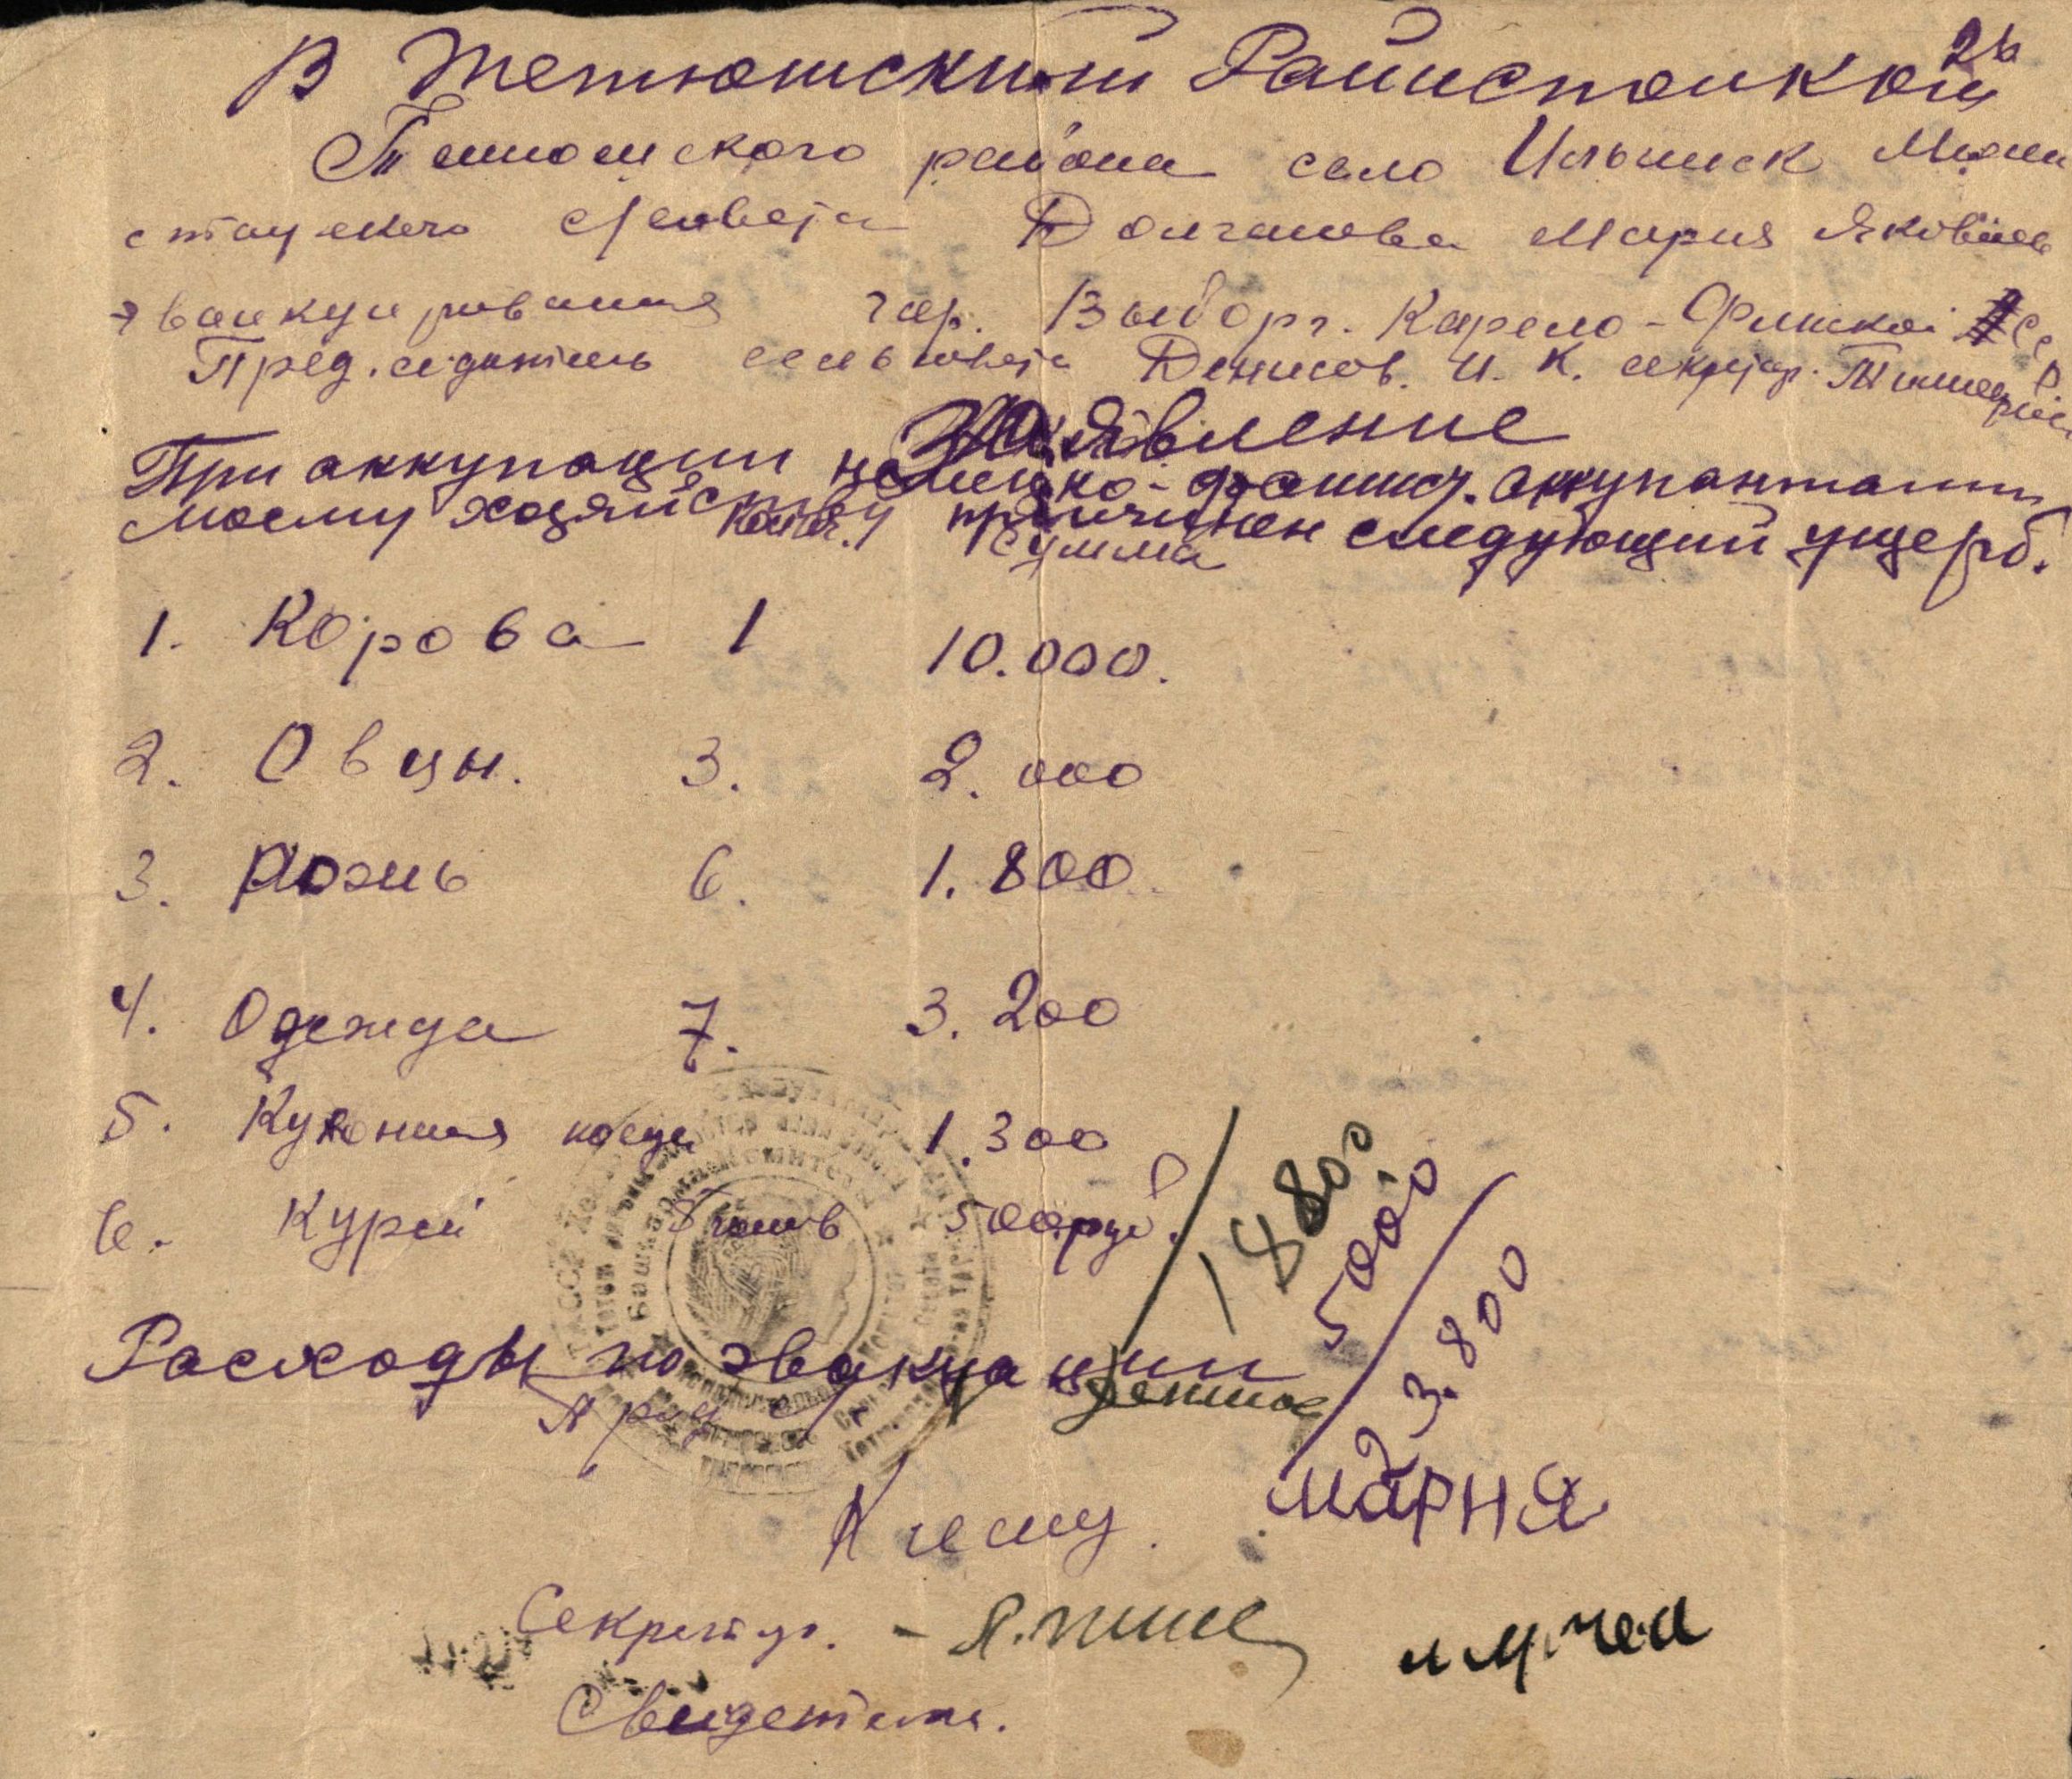 26
В Тетюшский Райисполком
Тетюшского района село Ильинск
Сельсовета Долганова Мария Яковлев
эвакуированная гор. Выборг. Карело-Финской ССР
Председатель сельсовета Денисов. И. К. секретар.
Заявление
При аккупации немецко-фашист. аккупантами
моему хозяйству причинен следующий ущерб.
колич. сумма
1. Корова 1 10.000.
2. Овцы. 3. 2.000
3. Рожь 6. 1.800.
4. Одежда 7. 3.200
5. Кухонная посуда 1.300
6. Курей 5 голов 500 руб.
18800
5000
23.800
Расходы по эвакуации
Пред с/с
К иску.
Мария
Секретар. -
Свидетели.